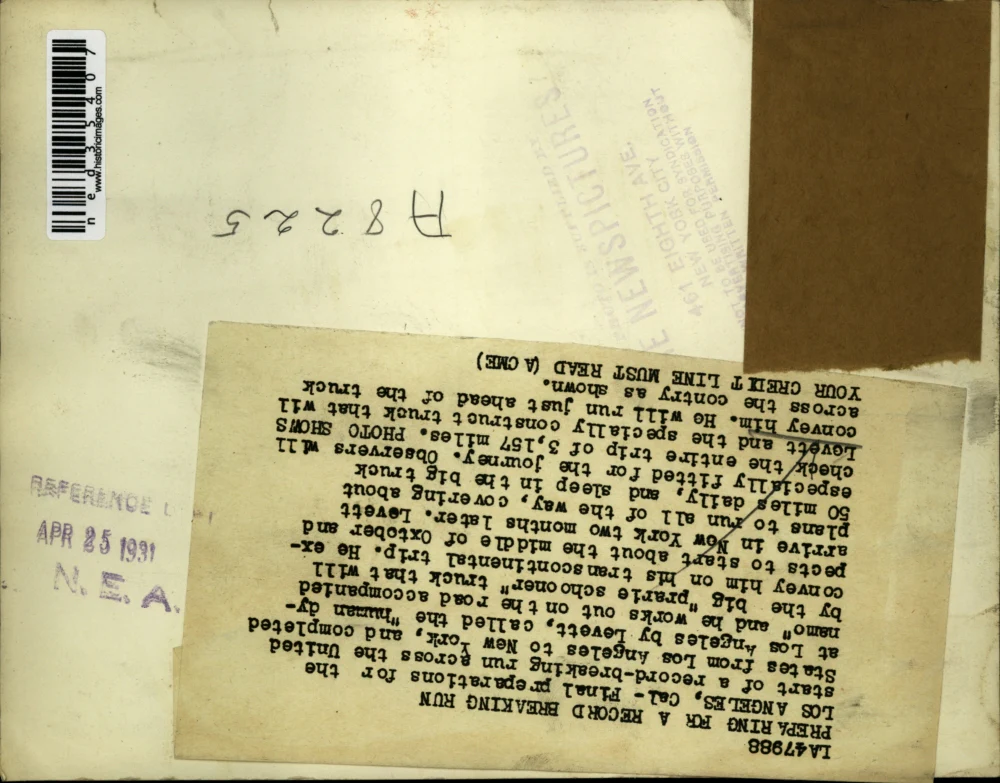 LA47988
PREPARING FOR A RECORD BREAKING RUN
LOS ANGELES, Cal- Final preparations for the
start of a record-breaking run across the United
States from Los Angeles to New York, and completed
at Los Angeles by Levett, called the "human dy-
namo" and he works out on the road accompanied
by the big "prarie schooner" truck that will
convey him on his transcontinental trip. He ex-
pects to start about the middle of October and
arrive in New York two months later. Levett
plans to run all of the way, covering about
50 miles daily, and sleep in the big truck
especially fitted for the journey. Observers will
check the entire trip of 3,157 miles. PHOTO SHOWS
Levett and the specially construct truck that will
convey him. He will run just ahead of the truck
across the contry as shown.
YOUR CREDIT LINE MUST READ (A CME)
A8225
NEWSPICTURES
461 EIGHTH AVE.
NEW YORK CITY
REFERENCE
APR 25 1931
N. E. A.
ned35407
www.historicimages.com